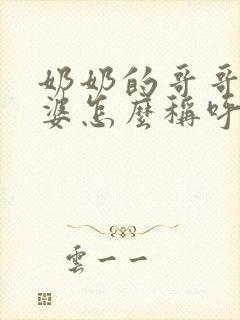 奶奶的哥哥
婆怎麼稱呼
雲一一